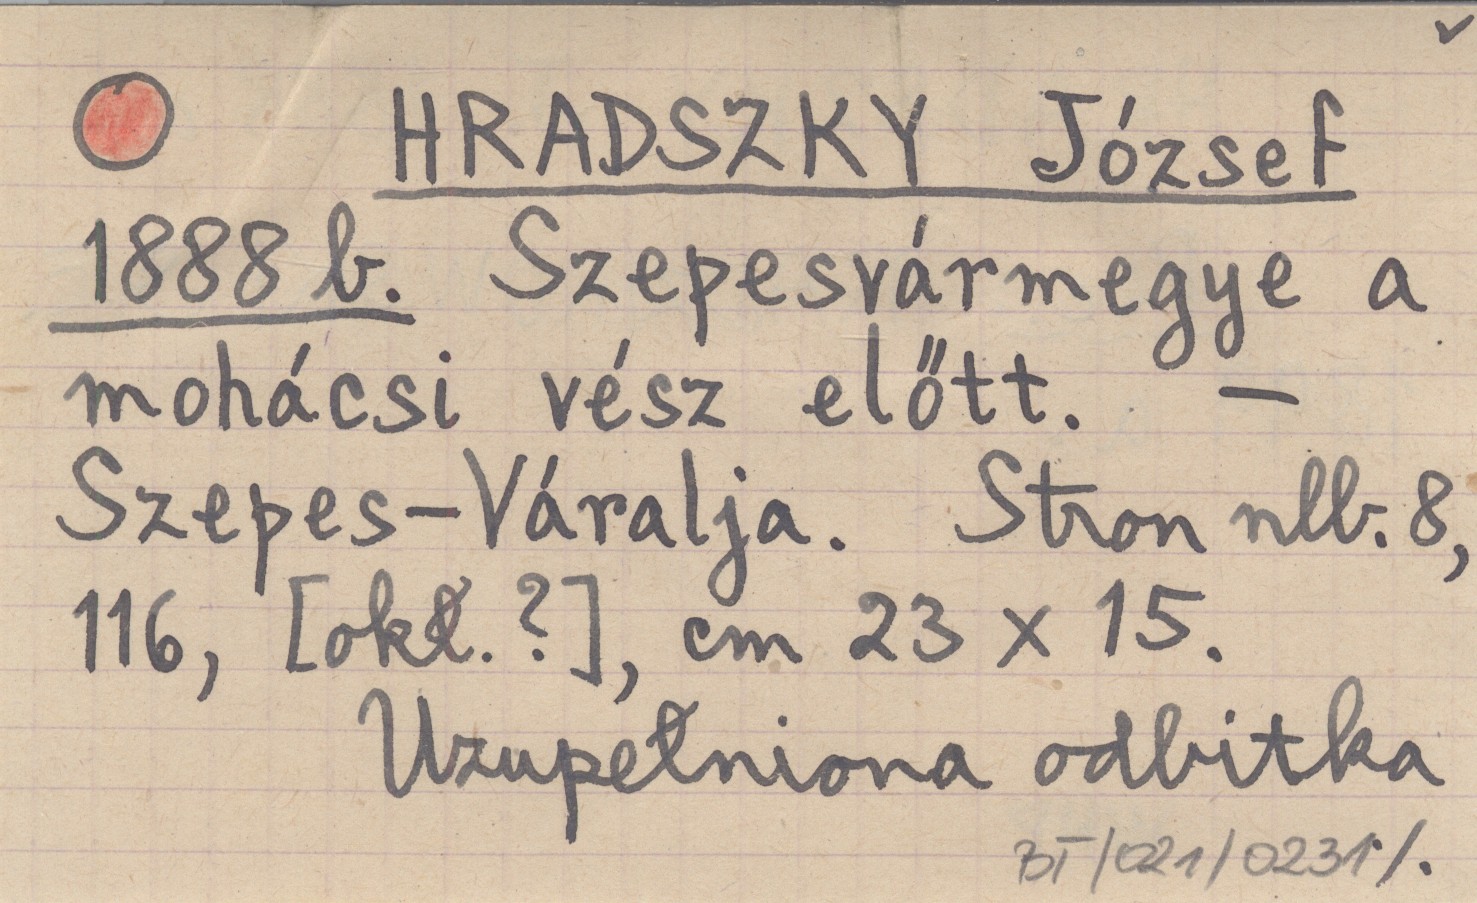 HRADSZKY József
1888 b. Szepesvármegye a
mohácsi vész előtt. –
Szepes-Váralja. Stron nlb. 8,
116, [okł. ?], cm 23 x 15.
Uzupełniona odbitka
BT/021/0231/.